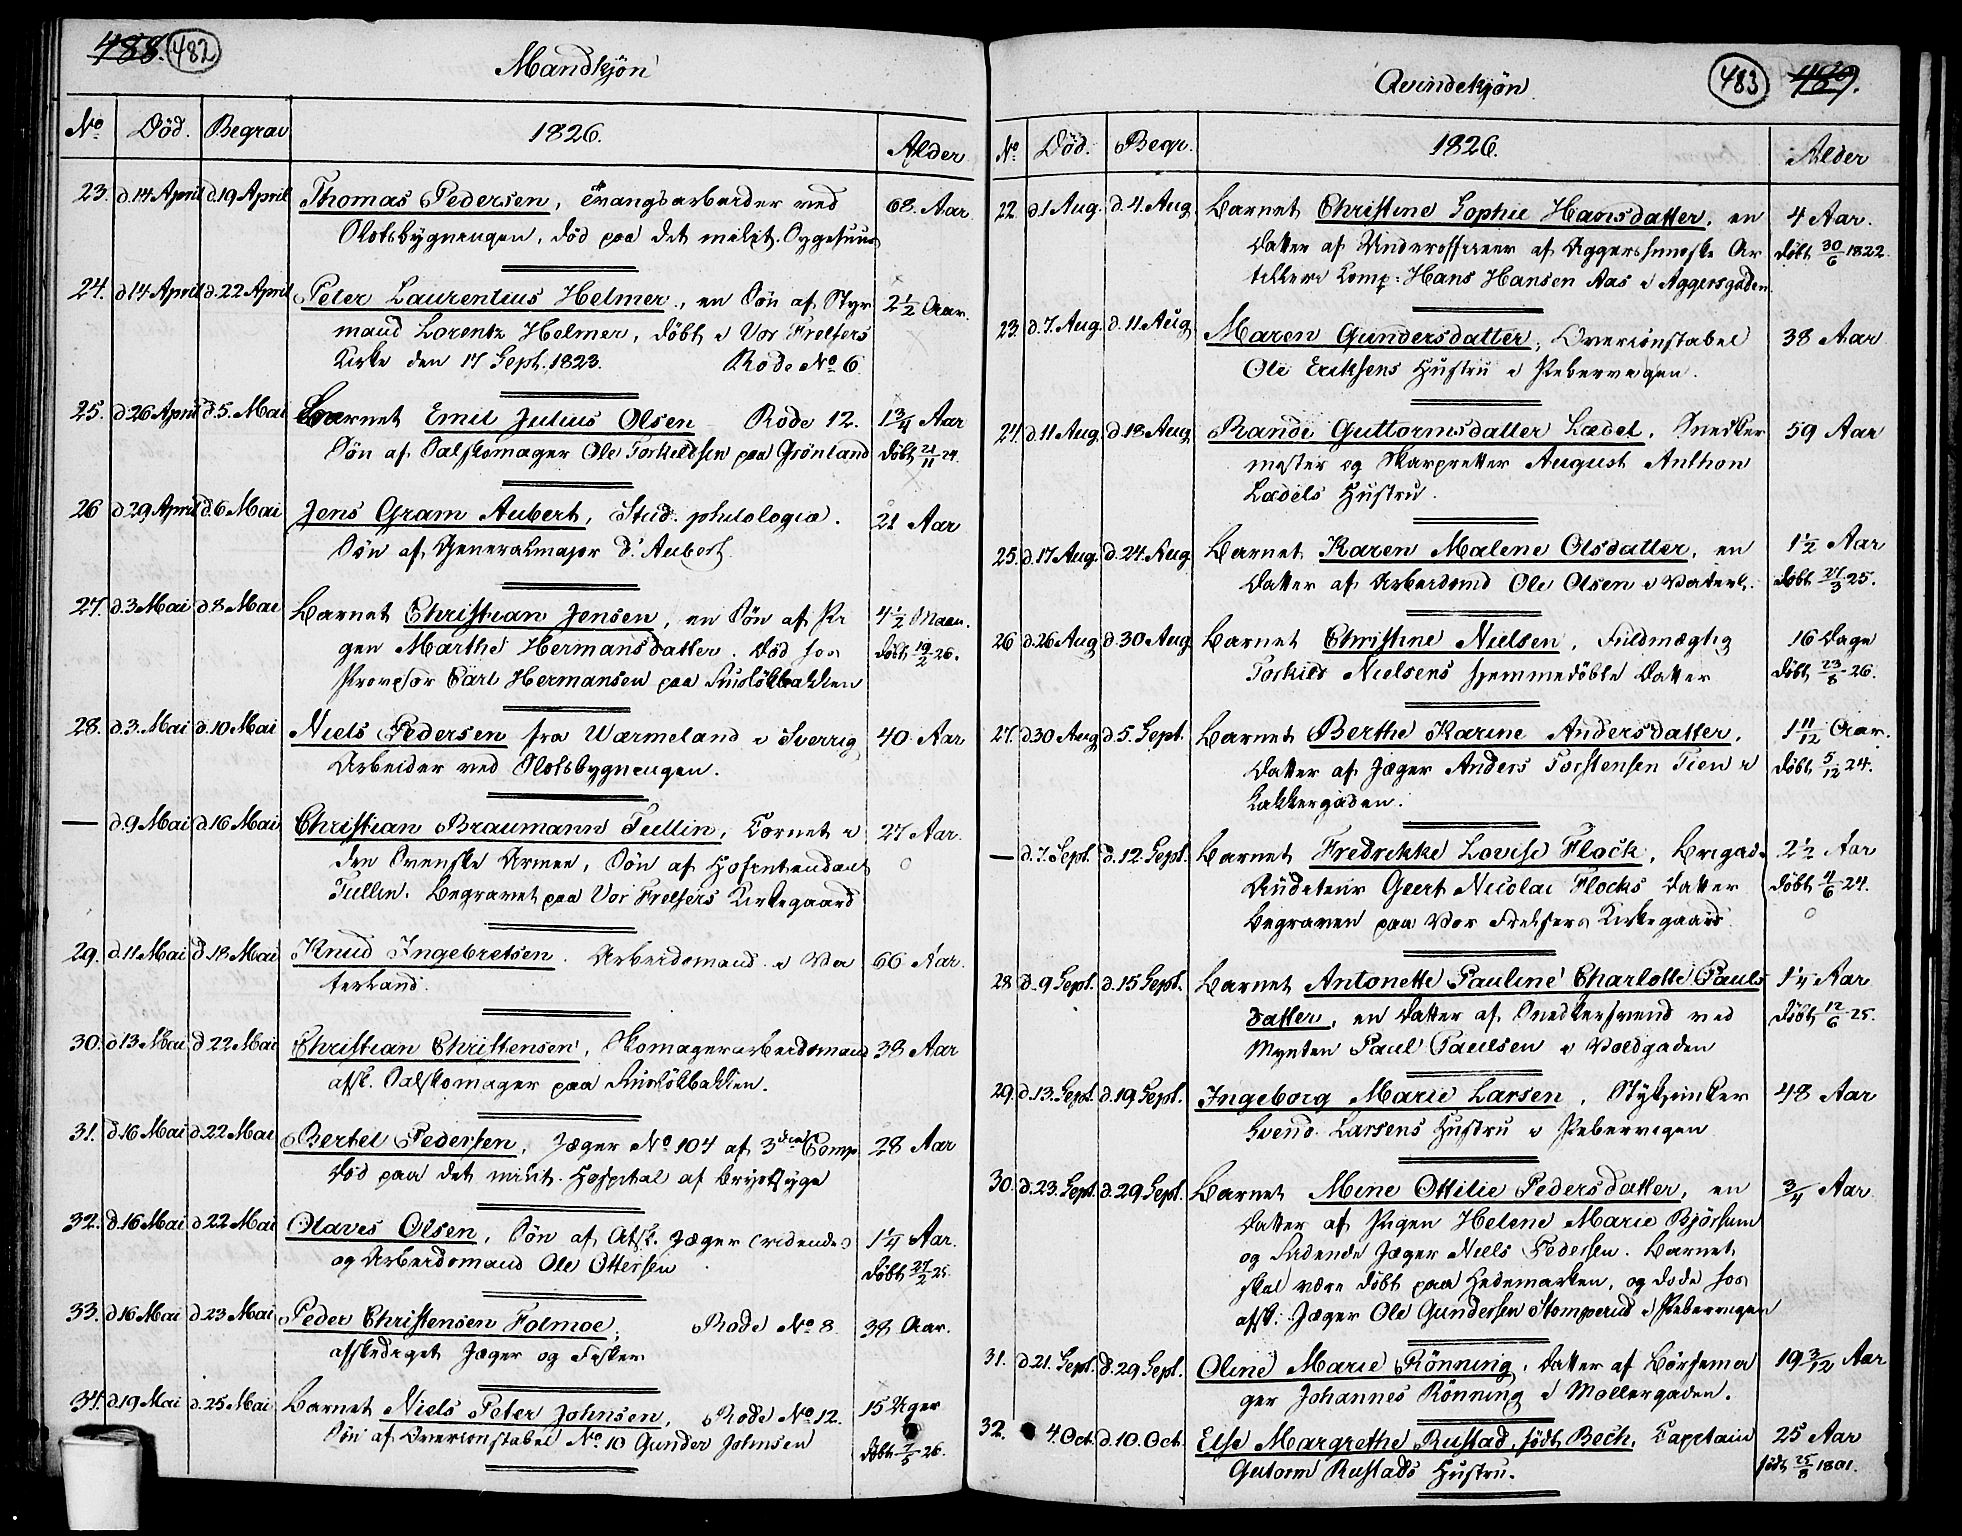 488. 482
Mandkjön
No Död. Begrav 1826. Alder
23. d.14 April d.19 April Thomas Pedersen, Tvangsarbeider ved 68. Aar
Slotsbygningen, död paa det milit. Sygehuus
24. d.14 April d.22 April Peter Laurentius Helmer, en Sön af Styr 2½ Aar.
mand Lorentz Helmer, döbt i Vor Frelsers
Kirke den 17 Sept. 1823. Rode No 6
25. d.26 April d.5. Mai Barnet Emil Julius Olsen Rode 12. 1¾ Aar
Sön af Salskomager Ole Torkeldsen paa Grönland döbt 21/11 24.
26 d.29 April d.6 Mai Jens Gram Aubert, Stud. philologiæ. 21 Aar
Sön af Generalmajor d'Aubert
27. d.3 Mai d.8 Mai Barnet Christian Jensen, en Sön af Pi 4½ Maan.
gen Marthe Hermansdatter. Död hos döbt 19/2 26.
Provisor Carl Hermansen paa Ruslökbakken
28. d.3. Mai d.10 Mai Niels Pedersen fra Wærmeland i Sverrig 40 Aar
Arbeider ved Slotsbygningen.
— d.9 Mai d.16 Mai Christian Braumann Tullin, Cornet i 27 Aar.
den Svenske Armee, Sön af Hofintendant
Tullin. Begravet paa Vor Frelsers Kirkegaard
29. d.11 Mai d.18 Mai Knud Ingebretsen. Arbeidsmand i Va 66 Aar.
terland.
30. d.13 Mai d.22 Mai Christian Christensen, Skomagerarbeidsmand 38 Aar
afsk. Salskomager paa Ruslökbakken.
31. d.16 Mai d.22 Mai Bertel Pedersen, Jæger No 104 af 3die Comp 28 Aar
död paa det milit. Hospital af Brystsyge
32. d.16 Mai d.22 Mai Olaves Olsen, Sön af Afsk. Jæger (ridende) 1¼ Aar.
og Arbeidsmand Ole Ottersen döbt 27/2 25.
33. d.16 Mai d.23 Mai Peder Christensen Folmoe, Rode No 8. 38 Aar.
afskediget Jæger og Fisker
34. d.19 Mai d.25 Mai Barnet Niels Peter Johnsen, Rode No 12. 15 Uger
Sön af Overconstabel No 10 Gunder Johnsen döbt 7/5 26.
483 489.
Qvindekjön
No Död. Begr. 1826. Alder
22 d.1 Aug. d.4. Aug Barnet Christine Sophie Hansdatter, en 4 Aar.
Datter af Underofficeer af Aggershuuske Ar döbt 30/6 1822
tillerie Comp: Hans Hansen Aas i Aggersgaden
23. d.7. Aug. d.11 Aug Maren Gundersdatter, Overconstabel 38 Aar
Ole Eriksens Hustru i Pebervigen.
24. d.11 Aug. d.18 Aug Randi Guttormsdatter Lædel. Snedker 59 Aar
mester og Skarpretter August Anthon
Lædels Hustru.
25. d.17 Aug. d.24 Aug Barnet Karen Malene Olsdatter, en 1½ Aar
Datter af Arbeidsmd Ole Olsen i Vaterl. döbt 27/3 25.
26 d.26 Aug d.30 Aug Barnet Christine Nielsen, Fuldmægtig 16 Dage
Torkild Nielsens hjemmedöbte Datter döbt 23/8 26.
27. d.30 Aug d.5. Sept. Barnet Berthe Karine Andersdatter, 1 11/12 Aar.
Datter af Jæger Anders Torstensen Tien i döbt 5/12 24.
Lakkergaden.
— d.7. Sept. d.12. Sept. Barnet Fredrikke Lovise Flock, Brigad- 2½ Aar
Auditeur Geert Nicolai Flocks Datter döbt 4/6 24.
begraven paa Vor Frelsers Kirkegaard
28 d.9 Sept. d.15 Sept. Barnet Antonette Pauline Charlotte Pauls 1¼ Aar
datter, en Datter af Snedkersvend ved döbt 12/6 25.
Mynten Paul Paulsen i Voldgaden
29. d.13. Sept. d.19 Sept. Ingeborg Marie Larsen, Stykjunker 48 Aar
Svend Larsens Hustru i Pebervigen
30. d.23. Sept. d.29 Sept. Barnet Mine Ottilie Pedersdatter, en ¾ Aar
Datter af Pigen Helene Marie Björsum
og Ridende Jæger Niels Pedersen. Barnet
skal være döbt paa Hedemarken, og döde hos
afsk. Jæger Ole Gundersen Stomperud i Pebervigen
31. d.21. Sept. d.29 Sept. Oline Marie Rönning, Datter af Börsema 19 3/12 Aar
ger Johannes Rönning i Möllergaden.
32. 4. Oct. d.10. Oct. Else Margrethe Rustad, født Bech, Capitain 25 Aar
Gutorm Rustads Hustru. født 25/8 1801.